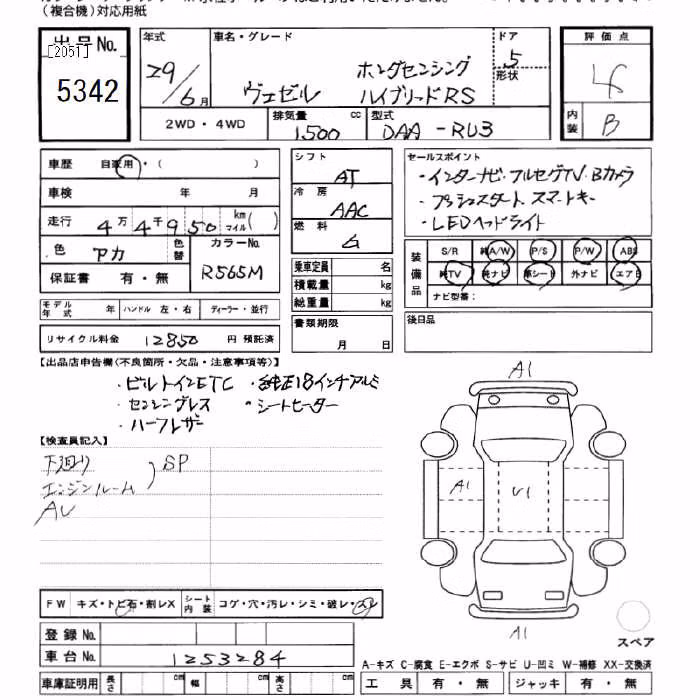 （複合機）対応用紙
出品No.
[2051]
5342
年式
29/6月
車名・グレード
ホンダセンシング
ヴェゼル ハイブリードRS
ドア
5
形状
評価点
4
内装
B
2WD・4WD
排気量
1,500 cc
型式
DAA-RU3
車歴 自家用・( )
車検 年 月
走行 4万4千950 km マイル( )
色 アカ
色替
カラーNo.
R565M
保証書 有・無
モデル年式 年
ハンドル 左・右
ディーラー・並行
リサイクル料金 12850 円 預託済
シフト
AT
冷房
AAC
燃料
G
乗車定員 名
積載量 kg
総重量 kg
書類期限
月 日
セールスポイント
・インターナビ・フルセグTV・Bカメラ
・プッシュスタート スマートキー
・LEDヘッドライト
装備品
S/R 純A/W P/S P/W ABS
純TV 純ナビ 革シート 外ナビ エアB
ナビ型番：
後日品
【出品店申告欄(不良箇所・欠品・注意事項等)】
・ビルトインETC ・純正18インチアルミ
・センシングレス ・シートヒーター
・ハーフレザー
【検査員記入】
下廻り
エンジンルーム
SP
AU
A1
A1
U1
A1
スペア
FW キズ・トビ石・割レX
シート内装 コゲ・穴・汚レ・シミ・破レ・スレ
登録No.
車台No. 1253284
車庫証明用 長さ cm 幅 cm 高さ cm
A-キズ C-腐食 E-エクボ S-サビ U-凹ミ W-補修 XX-交換済
工具 有・無 ジャッキ 有・無